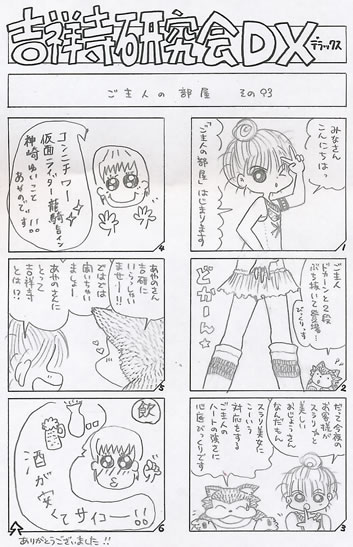 吉祥寺研究会DX
デラックス
ご主人の部屋 その93
みなさん
こんにちは。
「ご主人の部屋」はじまります
1
ご主人
ドカーンと2段
ぶち抜いて登場…
びっくりっす
どかーん☆
2
だって今夜の
お客様が
スラリッと
美しい
おじょうさん
なんだもん
スラリ美女に
こーいう
対応をする
ご主人の
ハートの強さに
心底びっくりです
3
コンニチワー
仮面ライダー龍騎ヒロイン
神崎ゆいこと
あやのです!!
4
あやのさん
吉研に
いらっしゃい
ませー!!
ではでは
聞いちゃい
ましょー
あやのさんに
とって
吉祥寺
とは!?
5
飲
酒が安くてサイコー!!
6
ありがとうございました!!